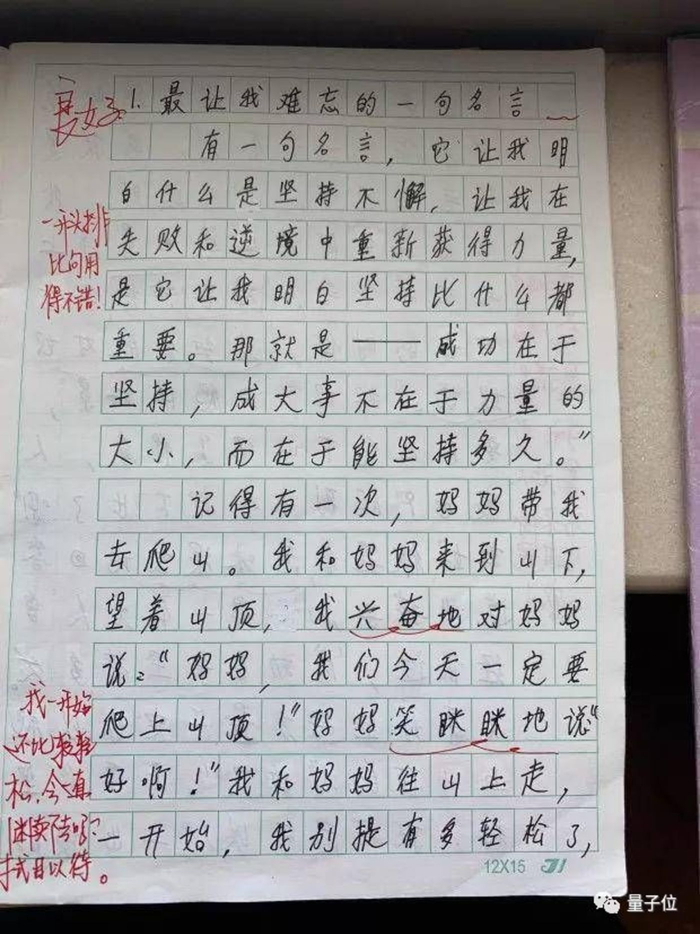 良好
1. 最让我难忘的一句名言
有一句名言，它让我明
白什么是坚持不懈，让我在
失败和逆境中重新获得力量,
是它让我明白坚持比什么都
重要。那就是——成功在于
坚持，成大事不在于力量的
大小，而在于能坚持多久。”
记得有一次，妈妈带我
去爬山。我和妈妈来到山下,
望着山顶，我兴奋地对妈妈
说：“妈妈，我们今天一定要
爬上山顶！”妈妈笑眯眯地说“
好啊！”我和妈妈往山上走，
一开始，我别提有多轻松了,
一开头排
比句用
得不错!
我一开始
还比较轻
松,
拭目以待。
12X15
量子位